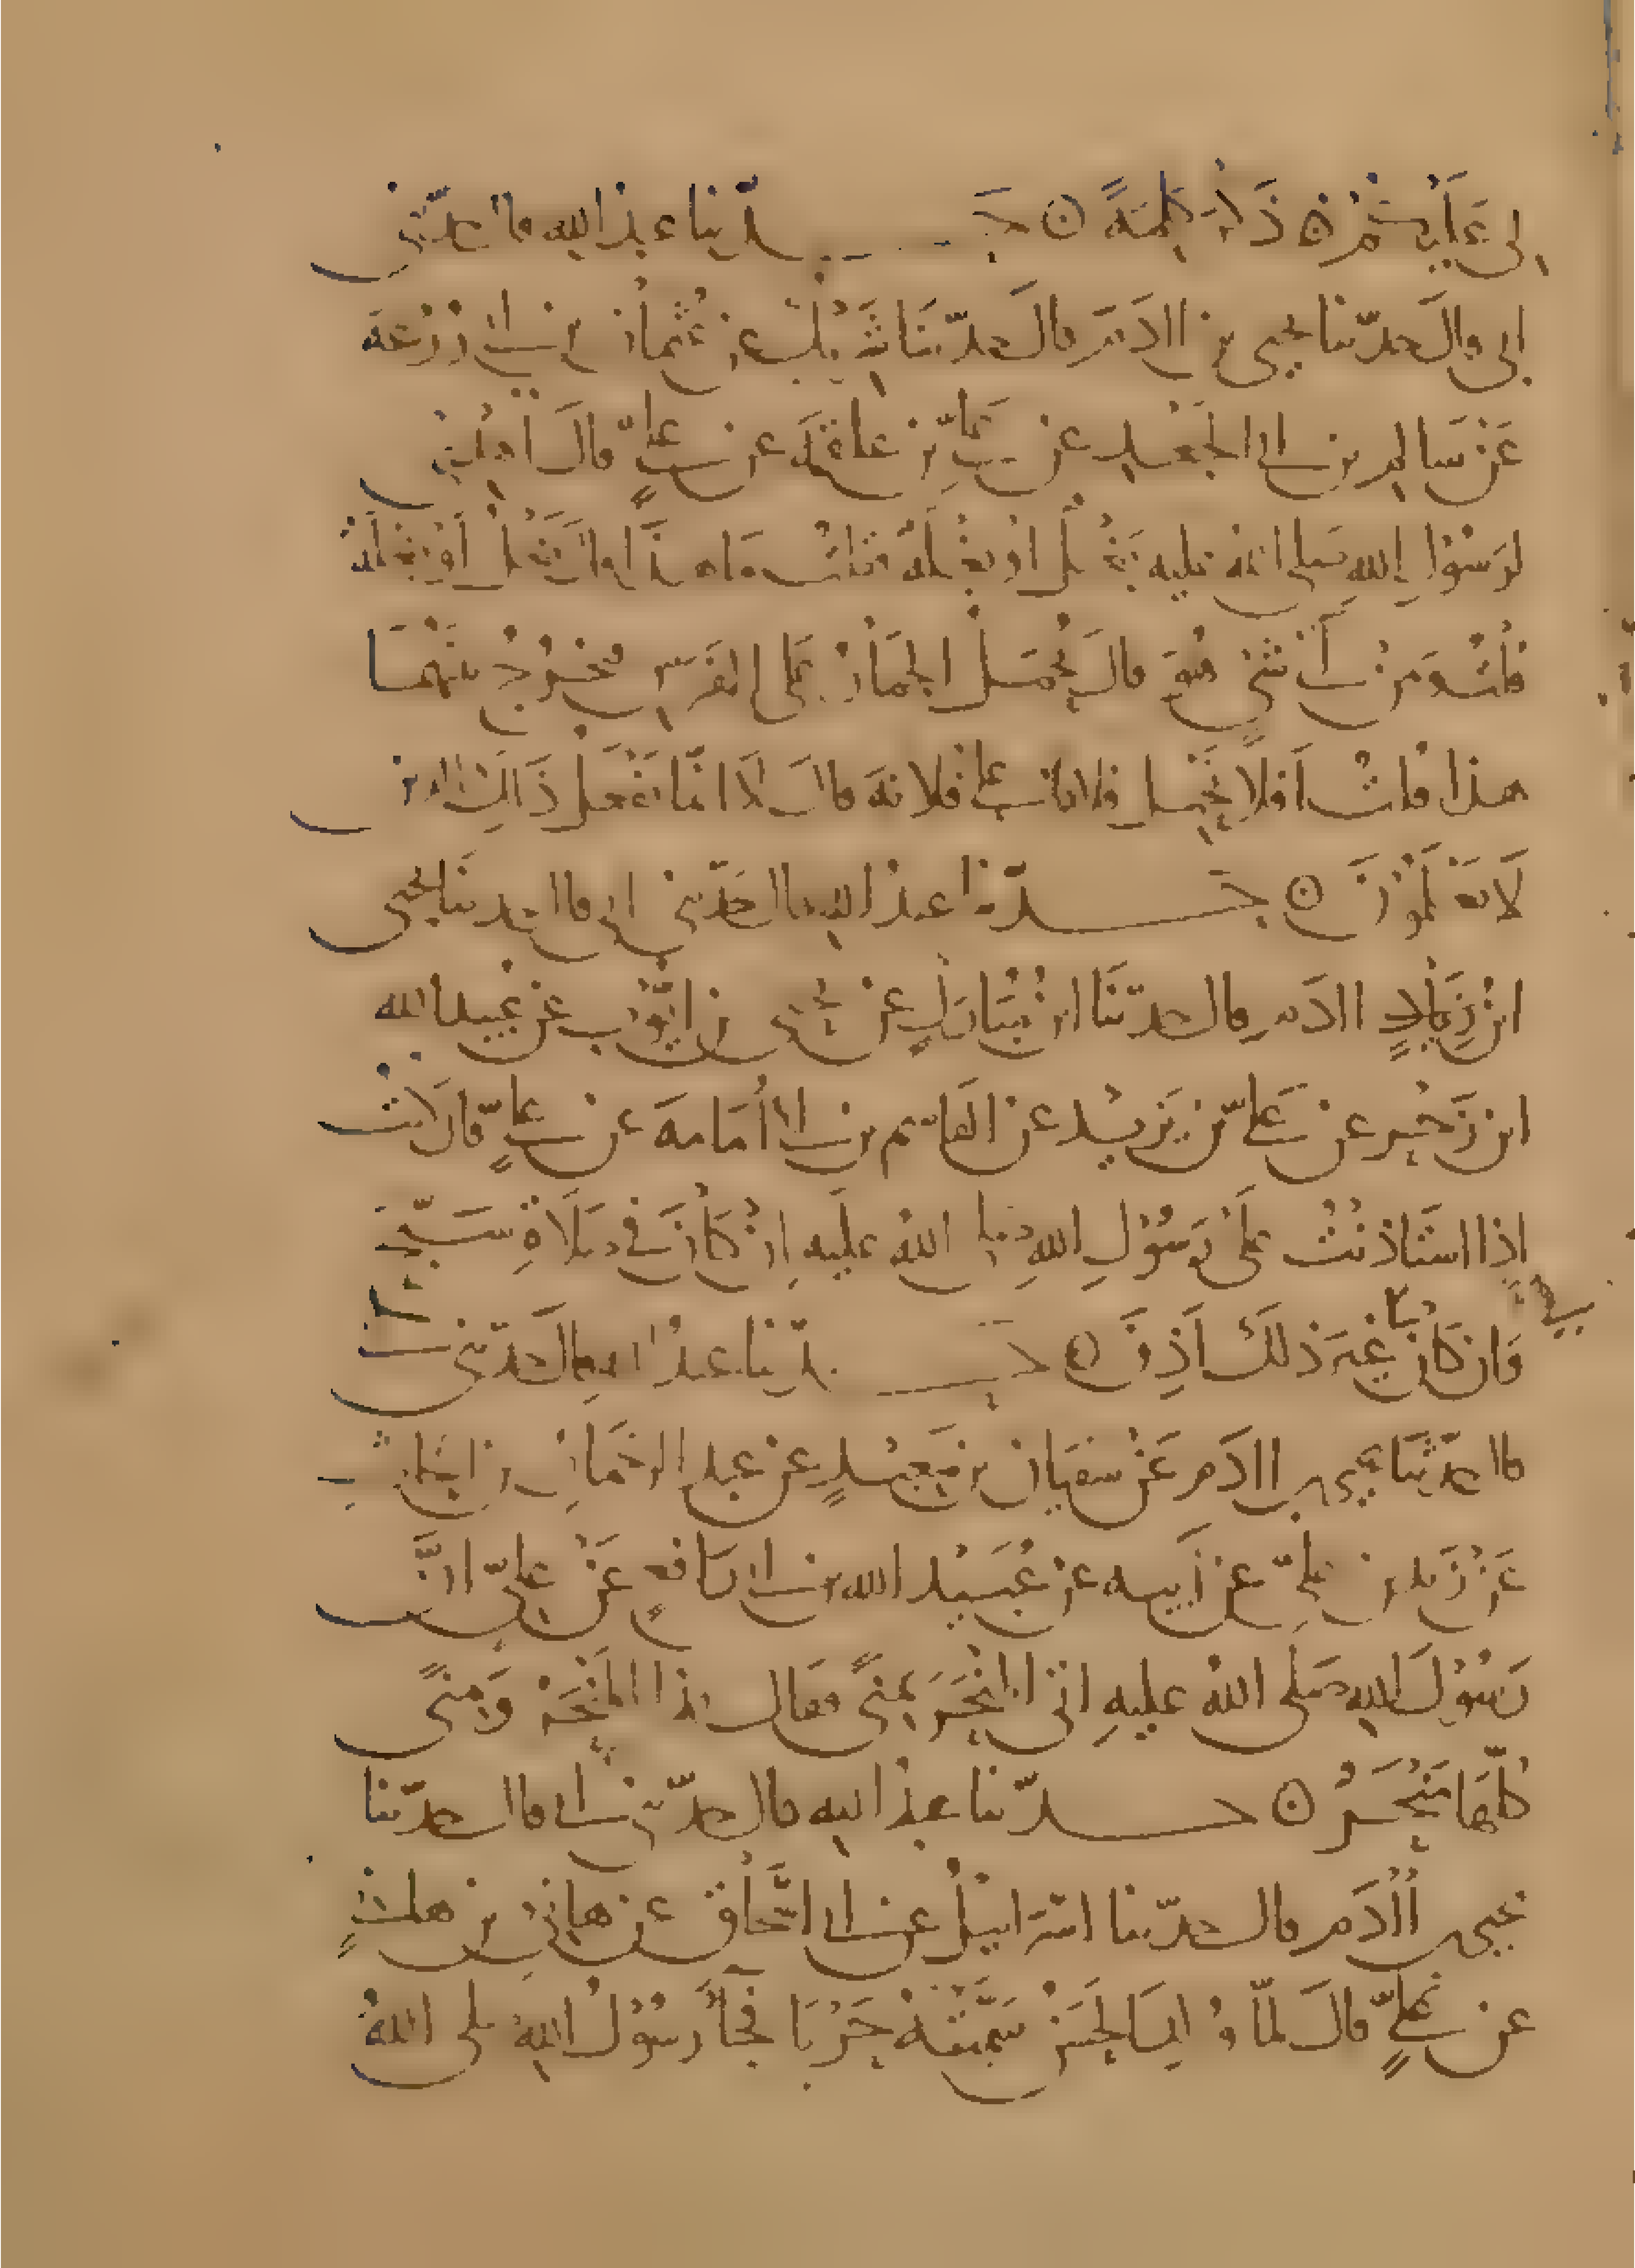 الى عاشرة ذا كلمة ○ حدثنا عبد الله قال حدثني
ابي قال حدثنا يحيى بن اادم قال حدثنا شريك عن عثمان بن ابي زرعة
عن سالم بن ابي الجعد عن علي بن علقمة عن علي قال اهدي
لرسول الله صلى الله عليه بغل او بغلة فقلت ما هذا قال بغل او بغلة
قلت ومن اي شي هو قال يحمل الحمار على الفرس فيخرج بينهما
هذا قلت افلا نحمل فلانا على فلانة قال لا انما يفعل ذلك الذين
لا يعلمون ○ حدثنا عبد الله قال حدثني ابي قال حدثنا يحيى
ابن اادم قال حدثنا ابن مبارك عن يحيى بن ايوب عن عبيد الله
ابن زحر عن علي بن يزيد عن القاسم بن ابي امامة عن علي قال كنت
اذا استاذنت على رسول الله صلى الله عليه ان كان في صلاة سبح
وان كان في غير ذلك اذن ○ حدثنا عبد الله قال حدثني ابي
قال حدثنا يحيى بن اادم عن سفيان بن سعيد عن عبد الرحمان بن الحارث
عن زيد بن علي عن ابيه عن عبيد الله بن ابي رافع عن علي ان
رسول الله صلى الله عليه اتى المنحر بمنى فقال هذا المنحر ومنى
كلها منحر ○ حدثنا عبد الله قال حدثني ابي قال حدثنا
يحيى بن اادم قال حدثنا اسرائيل عن ابي اسحاق عن هانئ بن هانئ
عن علي قال لما ولد الحسن سميته حربا فجاء رسول الله صلى الله